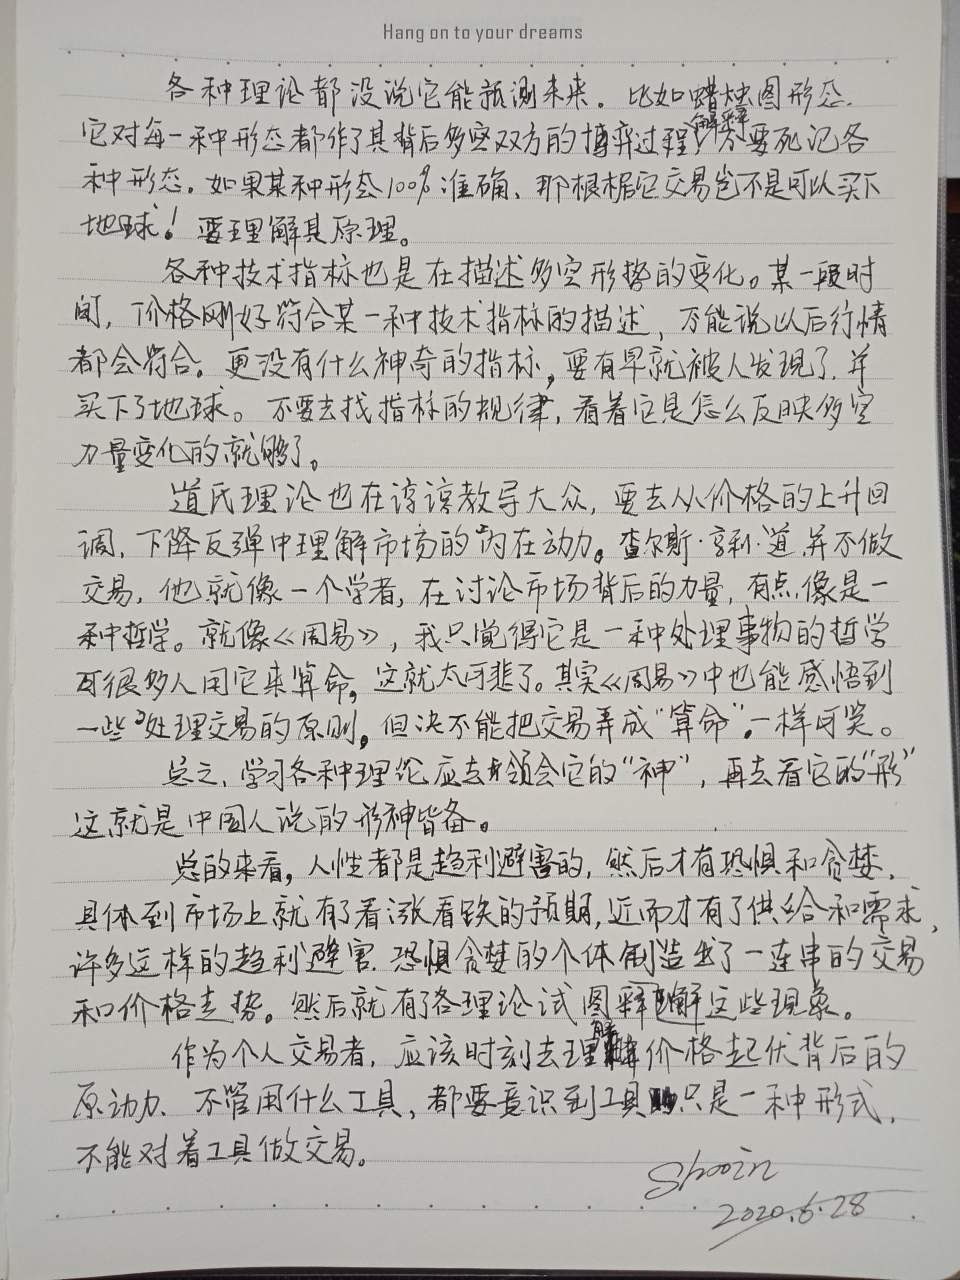 Hang on to your dreams
各种理论都没说它能预测未来。比如蜡烛图形态.
它对每一种形态都作了其背后多空双方的博弈过程解释,不要死记各
种形态。如果某种形态100%准确、那根据它交易岂不是可以买下
地球！要理解其原理。
各种技术指标也是在描述多空形势的变化。某一段时
间，价格刚好符合某一种技术指标的描述，不能说以后行情
都会符合。更没有什么神奇的指标，要有早就被人发现了.并
买下了地球。不要去找指标的规律，看着它是怎么反映多空
力量变化的就够了。
道氏理论也在谆谆教导大众，要去从价格的上升回
调，下降反弹中理解市场的"内在动力。查尔斯·亨利·道.并不做
交易，他就像一个学者，在讨论市场背后的力量，有点像是一
种哲学。就像《周易》，我只觉得它是一种处理事物的哲学
可很多人用它来算命，这就太可悲了。其实《周易》中也能感悟到
一些处理交易的原则，但决不能把交易弄成“算命”。一样可笑。
总之、学习各种理论应去领会它的“神”，再去看它的“形”
这就是中国人说的形神皆备。
总的来看，人性都是趋利避害的，然后才有恐惧和贪婪，
具体到市场上就有了看涨看跌的预期，近而才有了供给和需求，
许多这样的趋利避害.恐惧贪婪的个体制造出了一连串的交易
和价格走势。然后就有了各理论试图解释这些现象。
作为个人交易者，应该时刻去理解价格起伏背后的
原动力、不管用什么工具，都要意识到工具只是一种形式，
不能对着工具做交易。
Shooin
2020.6.28